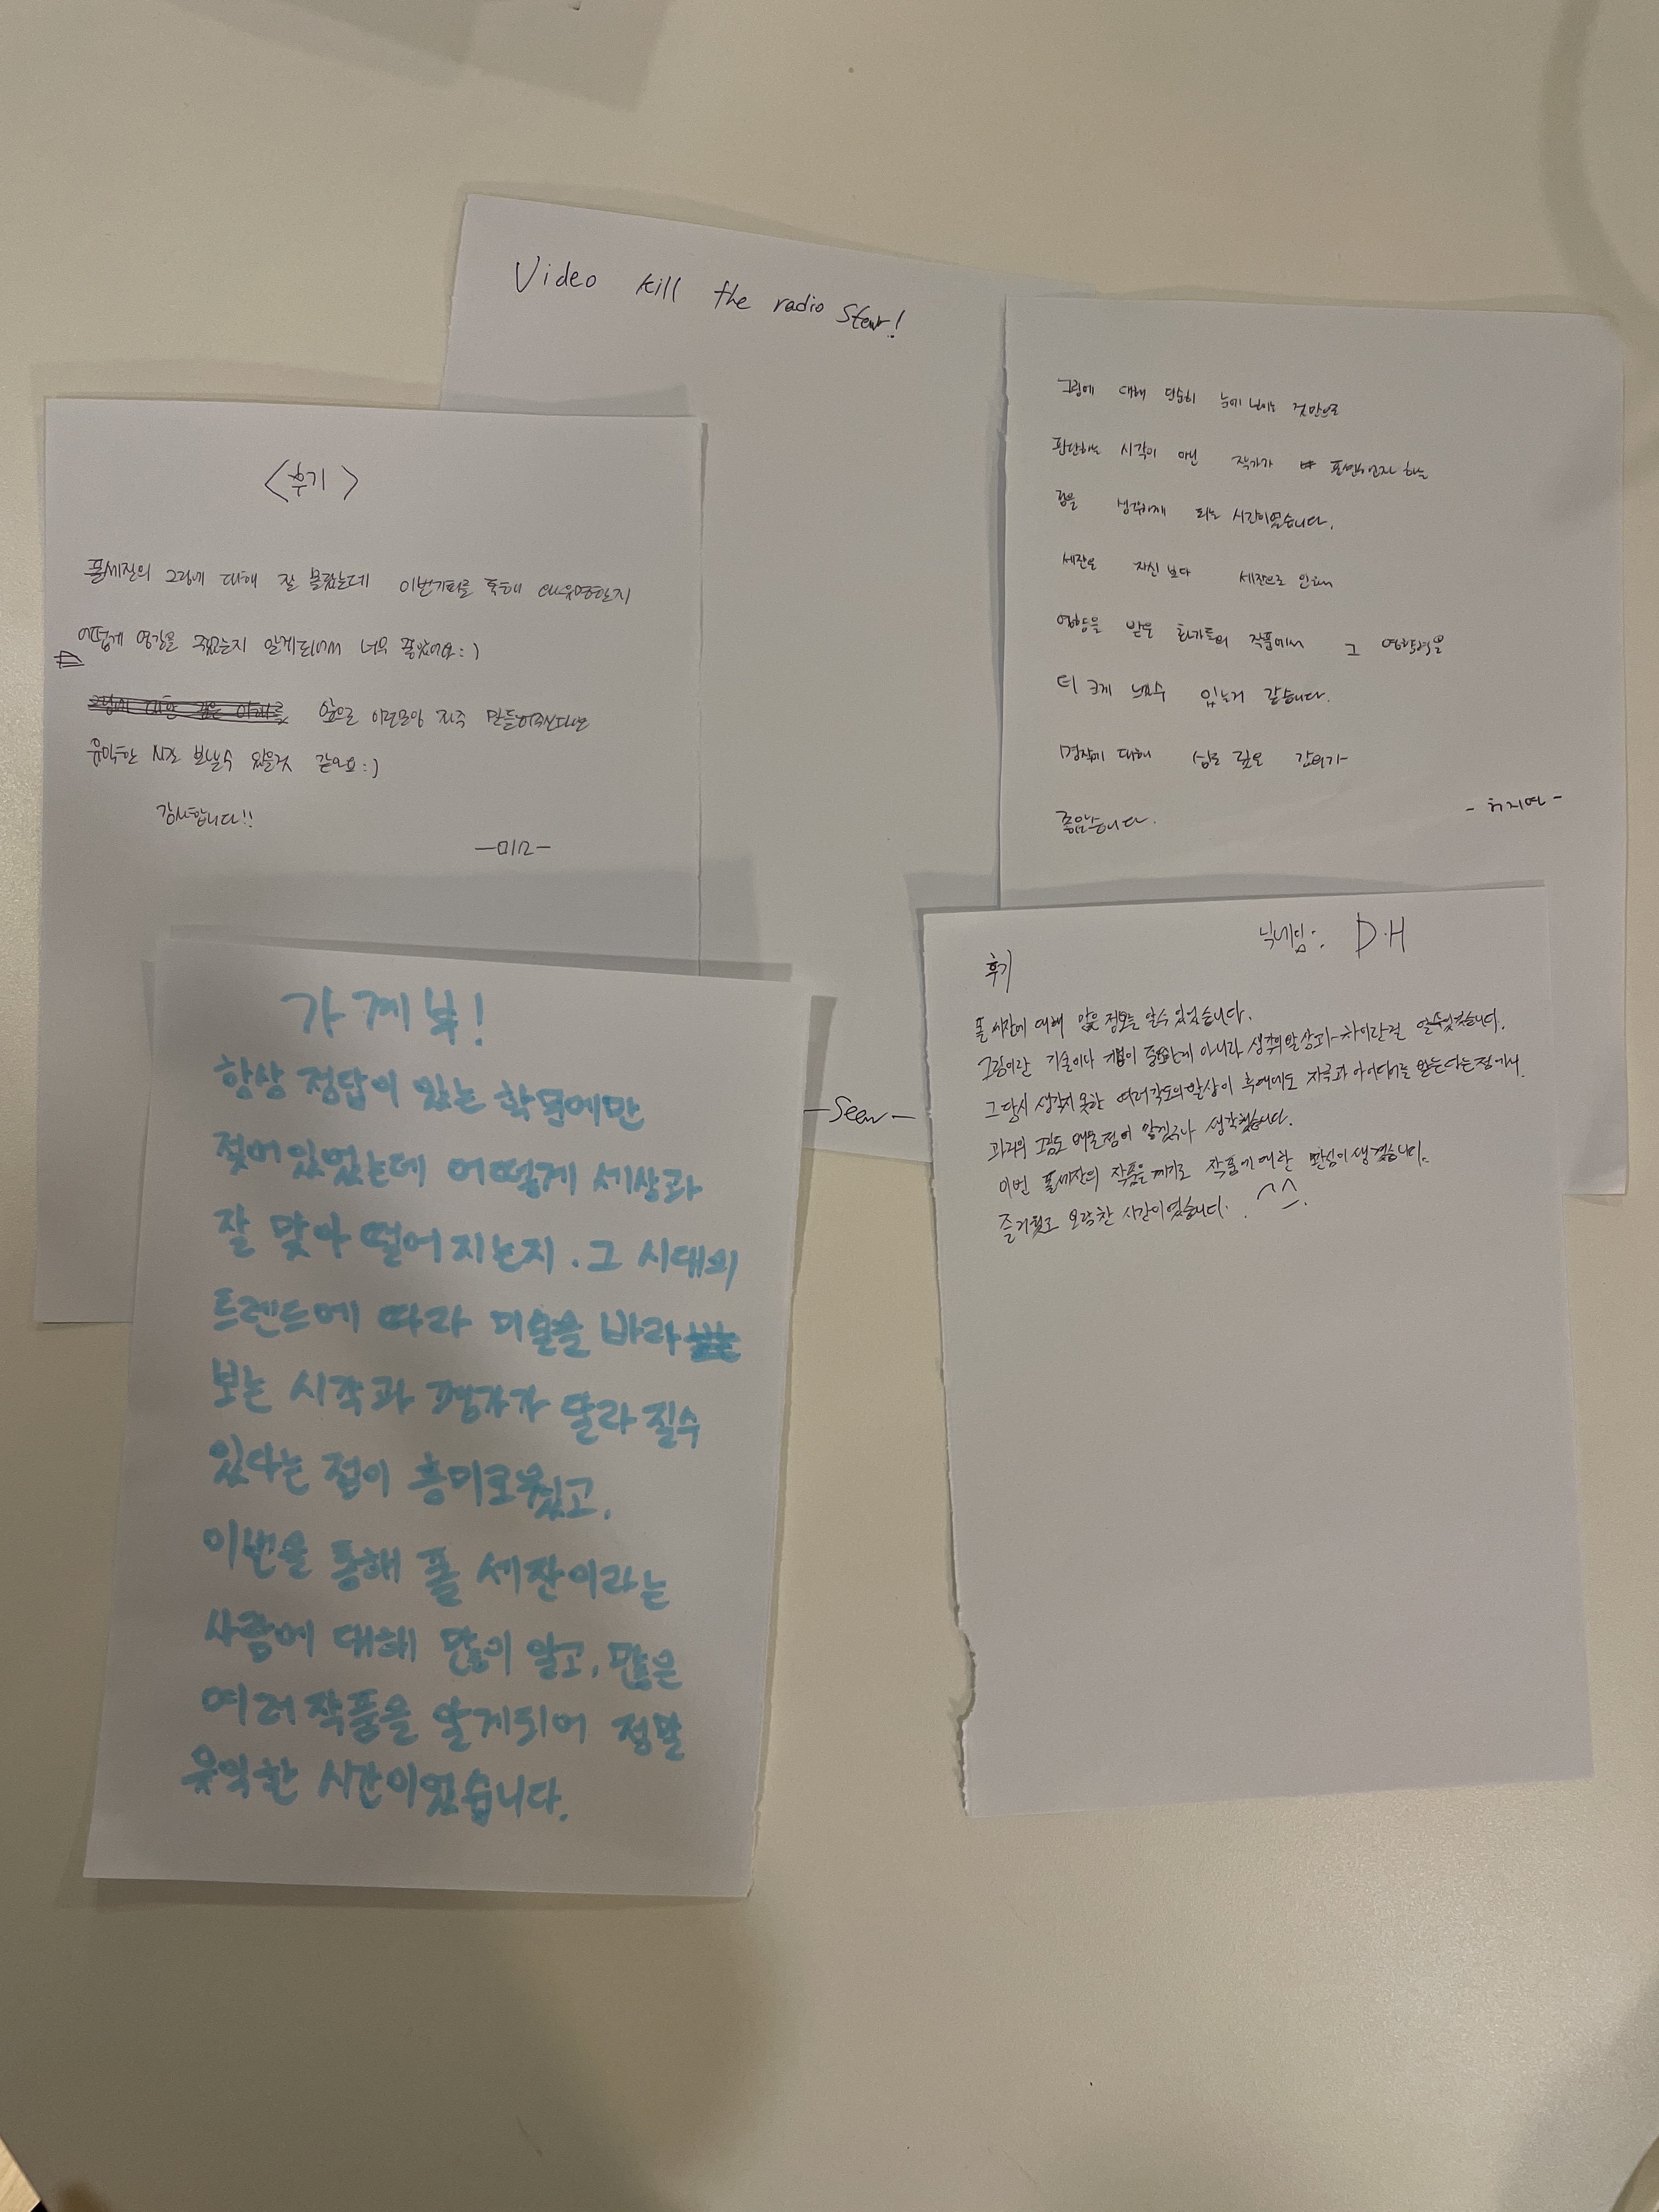 Video kill the radio Star!
-Seen-
<후기>
폴세잔의 그림에 대해 잘 몰랐는데 이번기회를 통해 왜유명한지
어떻게 영감을 주었는지 알게되어서 너무 좋았어요:)
앞으로 이런모임 자주 만들어주신다면
유익한 시간 보낼수 있을것 같아요:)
감사합니다!!
그림에 대해 단순히 눈에 보이는 것만으로
판단하는 시각이 아닌 작가가 표현하고자 하는
점을 생각하게 되는 시간이었습니다.
세잔은 자신 보다 세잔으로 인해
영향을 받은 화가들의 작품에서 그 영향력을
더 크게 느낄수 있는거 같습니다.
명작에 대해 심도 깊은 강의가
좋았습니다.
가계부!
항상 정답이 있는 학문에만
젖어있었는데 어떻게 세상과
잘 맞아 떨어지는지. 그 시대의
트렌드에 따라 미술을 바라
보는 시각과 평가가 달라질수
있다는 점이 흥미로웠고,
이번을 통해 폴 세잔이라는
사람에 대해 많이 알고, 많은
여러작품을 알게되어 정말
유익한 시간이었습니다.
닉네임: D.H
후기
폴 세잔에 대해 많은 정보를 알수 있었습니다.
그림이란 기술이나 기법이 중요한게 아니라 생각의 발상의 차이란걸 알수있었습니다.
그 당시 생각지 못한 여러각도의 발상이 후대에도 자극과 아이디어를 받는다는 점에서
과거의 그림도 배울점이 많겠구나 생각했습니다.
이번 폴세잔의 작품을 계기로 작품에 대한 관심이 생겼습니다.
즐거웠고 유익한 시간이였습니다. ^^.